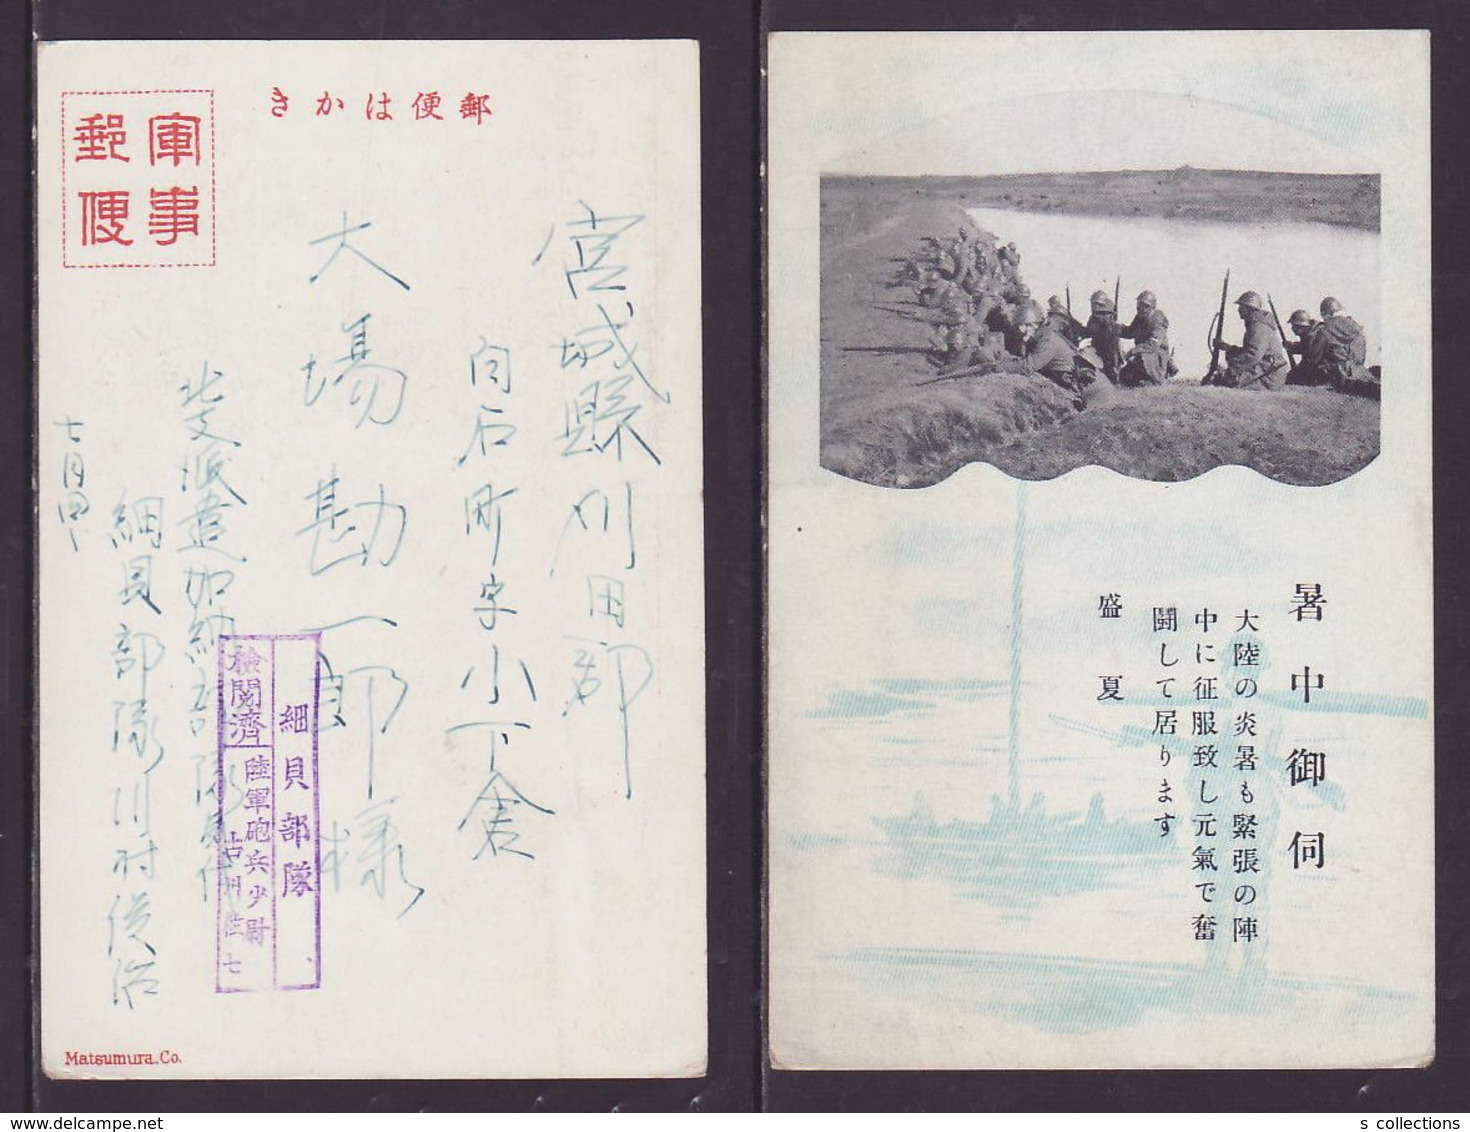 郵便はかき
軍事
郵便
宮城縣刈田郡
白石町字小下倉
大場勘一郎様
北支派遣加納部隊気付
細貝部隊川村俊治
七月四日
細貝部隊
検閲濟
陸軍砲兵少尉
Matsumura.Co.
暑中御伺
大陸の炎暑も緊張の陣
中に征服致し元氣で奮
鬪して居ります
盛夏
s collections